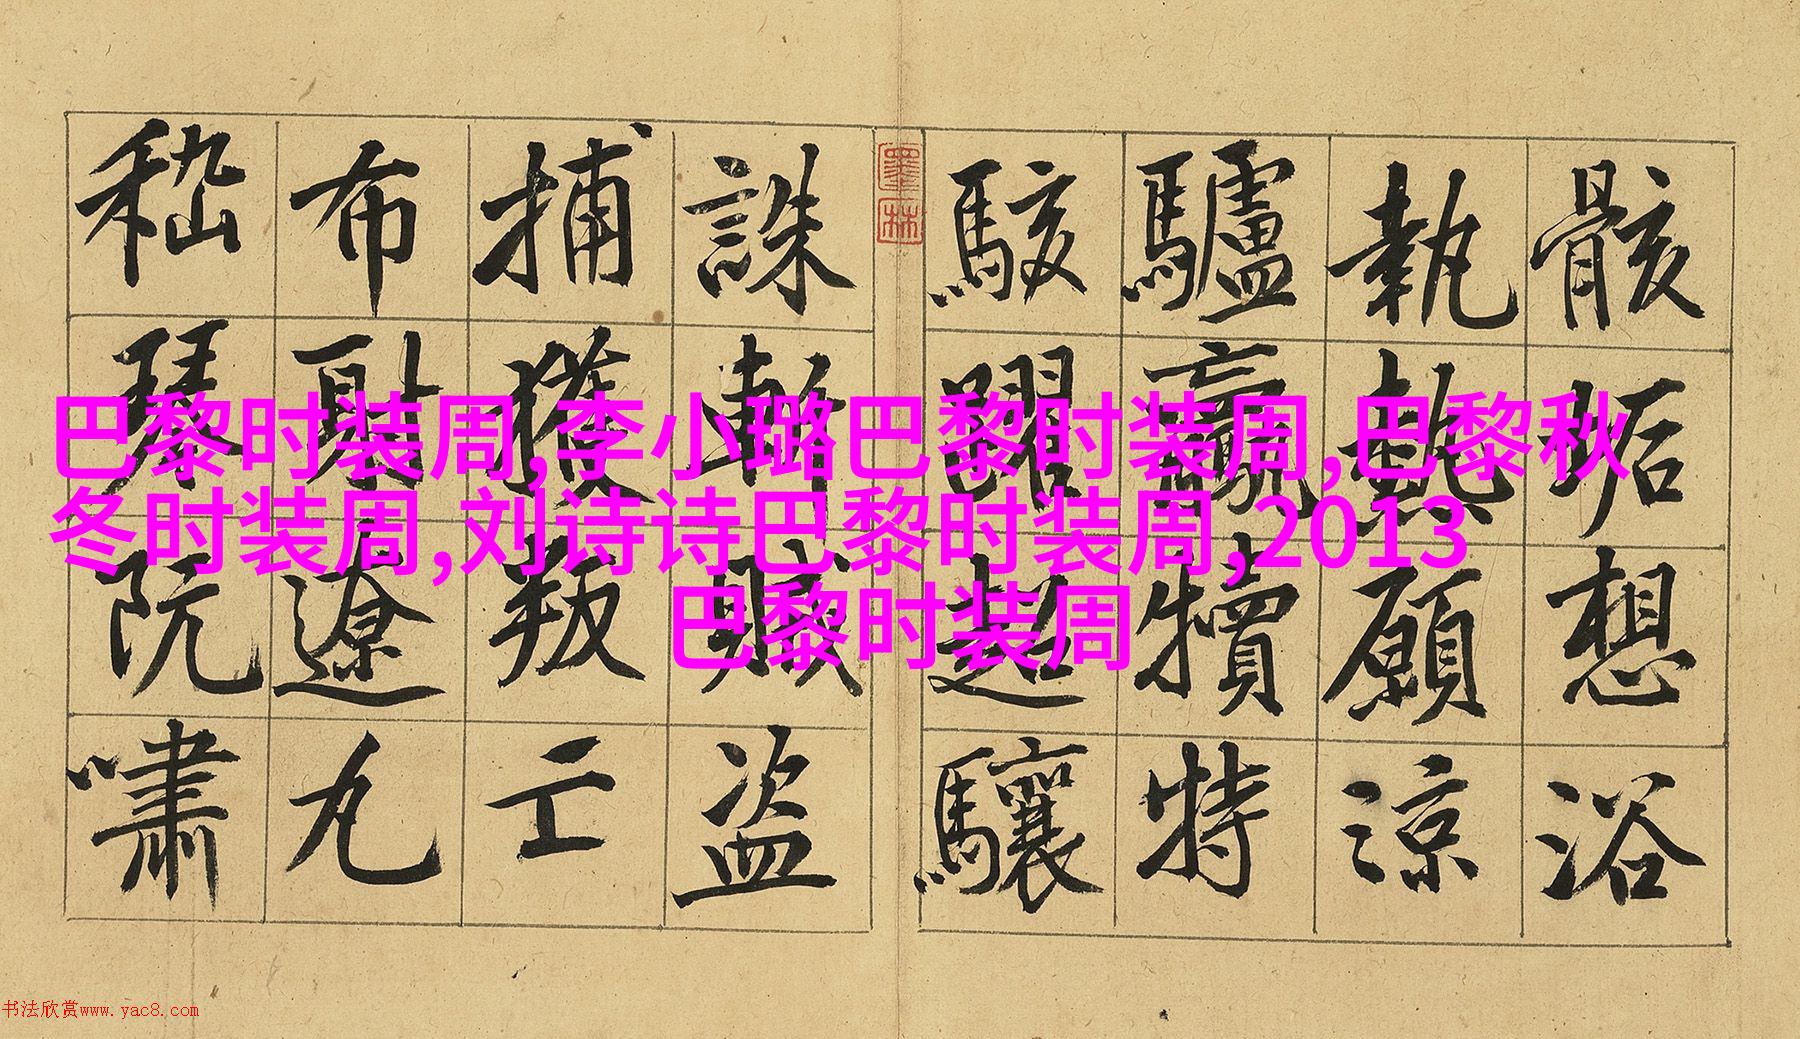 骸垢想浴
執熱願涼
驢驘犢特
駭躍超驤
墨林
誅斬賊盜
捕獲叛亡
布射遼丸
嵇琴阮嘯
巴黎时装周,李小璐巴黎时装周,巴黎秋
冬时装周,刘诗诗巴黎时装周,2013
巴黎时装周
书法欣赏www.yac8.com